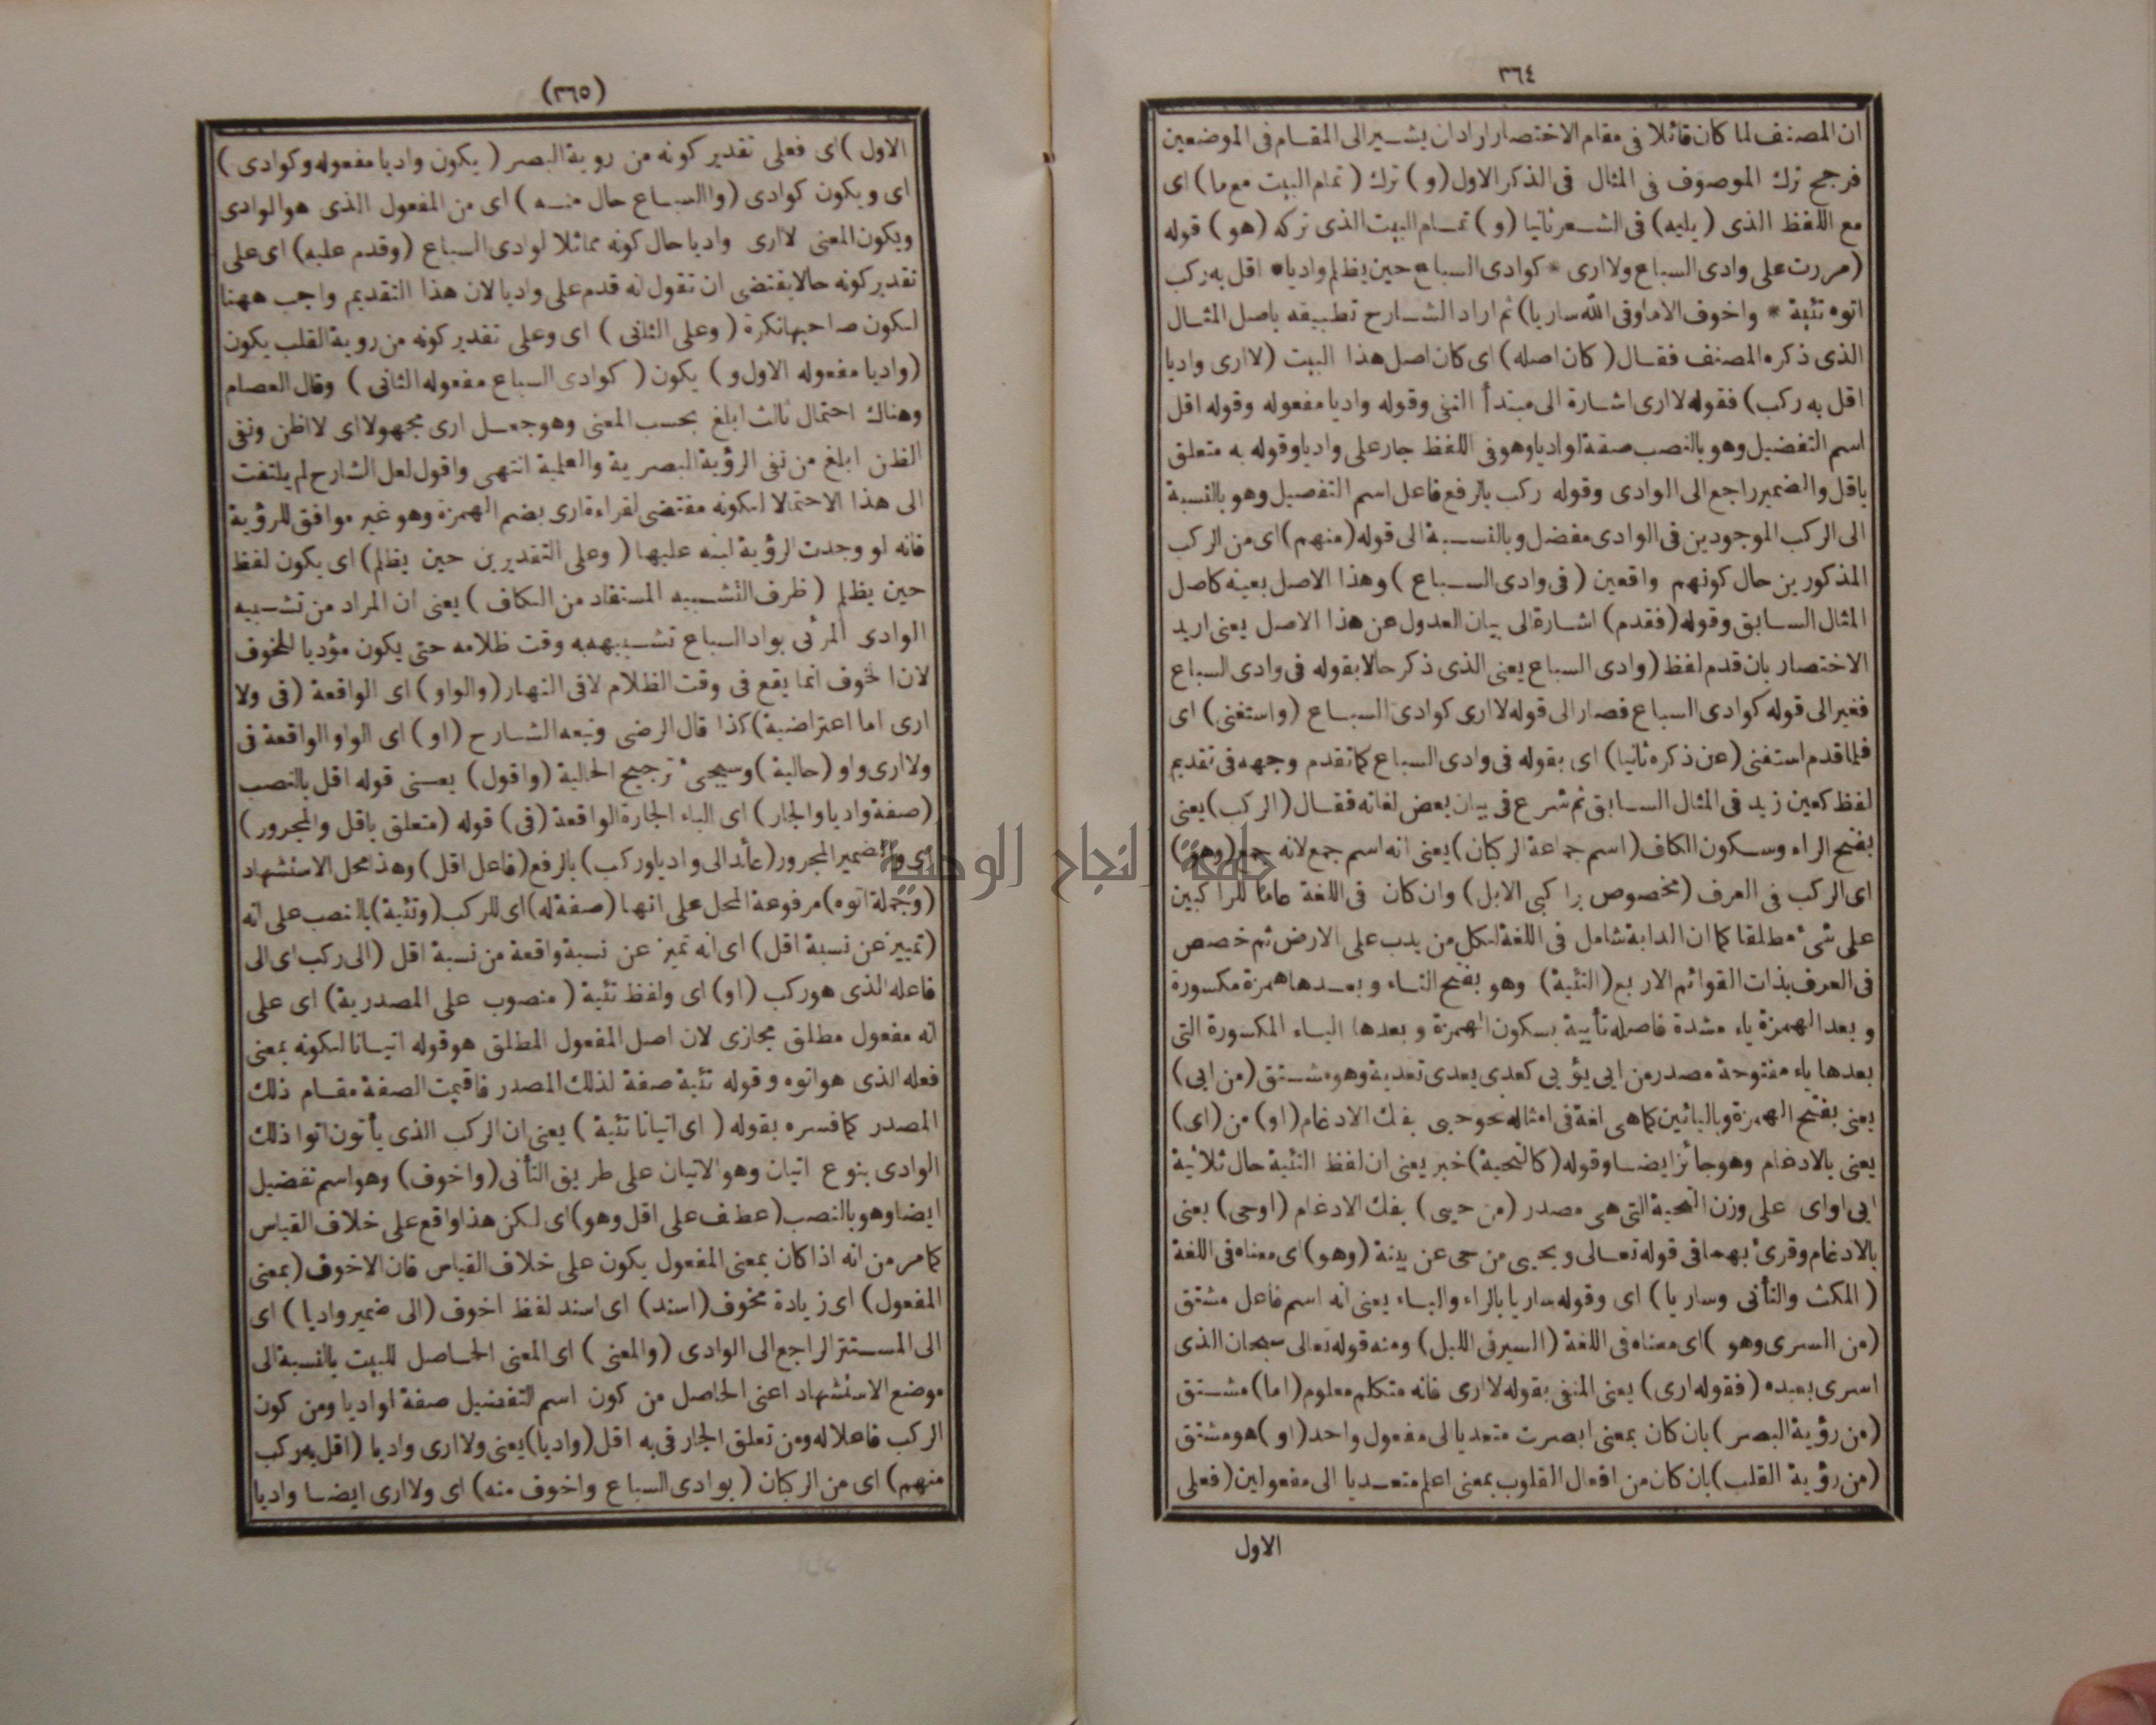 ٣٦٤
ان المصنف لما كان قائلا فى مقام الاختصار اراد ان يشير الى المقام فى الموضعين
فرجح ترك الموصوف فى المثال فى الذكر الاول (و) ترك (تمام البيت مع ما) اى
مع اللفظ الذى (يليه) فى الشعر ثانيا (و) تمام البيت الذى تركه (هو) قوله
(مررت على وادى السباع ولا ارى * كوادى السباع حين يظلم واديا * اقل به ركب
اتوه تئية * واخوف الا ما وقى الله ساريا) ثم اراد الشارح تطبيقه باصل المثال
الذى ذكره المصنف فقال (كان اصله) اى كان اصل هذا البيت (لا ارى واديا
اقل به ركب) فقوله لا ارى اشارة الى مبتدأ النفى وقوله واديا مفعوله وقوله اقل
اسم التفضيل وهو بالنصب صفة لواديا وهو فى اللفظ جار على واديا وقوله به متعلق
باقل والضمير راجع الى الوادى وقوله ركب بالرفع فاعل اسم التفضيل وهو بالنسبة
الى الركب الموجودين فى الوادى مفضل وبالنسبة الى قوله (منهم) اى من الركب
المذكورين حال كونهم واقعين (فى وادى السباع) وهذا الاصل بعينه كاصل
المثال السابق وقوله (فقدم) اشارة الى بيان العدول عن هذا الاصل يعنى اريد
الاختصار بان قدم لفظ (وادى السباع يعنى الذى ذكر حالا بقوله فى وادى السباع
فغير الى قوله كوادى السباع فصار الى قوله لا ارى كوادى السباع (واستغنى) اى
فلما قدم استغنى (عن ذكره ثانيا) اى بقوله فى وادى السباع كما تقدم وجهه فى تقديم
لفظ كعين زيد فى المثال السابق ثم شرع فى بيان بعض لغاته فقال (الركب) يعنى
بفتح الراء وسكون الكاف (اسم جماعة الركبان) يعنى انه اسم جمع لانه جمع (وهو)
اى الركب فى العرف (مخصوص براكبى الابل) وان كان فى اللغة عاما للراكبين
على شئ مطلقا كما ان الدابة شامل فى اللغة لكل من يدب على الارض ثم خصص
فى العرف بذات القوائم الاربع (التئية) وهو بفتح التاء وبعدها همزة مكسورة
وبعد الهمزة ياء مشدة فاصله تأيية بسكون الهمزة وبعدها الياء المكسورة التى
بعدها ياء مفتوحة مصدر من ايى يؤيى كعدى يعدى تعدية وهو مشتق (من ايى)
يعنى بفتح الهمزة وباليائين كما هى لغة فى امثاله نحو حيى بفك الادغام (او) من (اى)
يعنى بالادغام وهو جائز ايضا وقوله (كالتحية) خبر يعنى ان لفظ التئية حال ثلاثية
ايى او اى على وزن التحية التى هى مصدر (من حيى) بفك الادغام (او حى) يعنى
بالادغام وقرئ بهما فى قوله تعالى ويحيى من حى عن بينة (وهو) اى معناه فى اللغة
(المكث والتأنى وساريا) اى وقوله ساريا بالراء والياء يعنى انه اسم فاعل مشتق
(من السرى وهو) اى معناه فى اللغة (السير فى الليل) ومنه قوله تعالى سبحان الذى
اسرى بعبده (فقوله ارى) يعنى المنفى بقوله لا ارى فانه متكلم معلوم (اما) مشتق
(من رؤية البصر) بان كان بمعنى ابصرت متعديا الى مفعول واحد (او) هو مشتق
(من رؤية القلب) بان كان من افعال القلوب بمعنى اعلم متعديا الى مفعولين (فعلى
الاول
(٣٦٥)
الاول) اى فعلى تقدير كونه من روية البصر (يكون واديا مفعوله وكوادى)
اى ويكون كوادى (واالسباع حال منه) اى من المفعول الذى هو الوادى
ويكون المعنى لا ارى واديا حال كونه مماثلا لوادى السباع (وقدم عليه) اى على
تقدير كونه حالا يقتضى ان تقول انه قدم على واديا لان هذا التقديم واجب ههنا
لكون صاحبها نكرة (وعلى الثانى) اى وعلى تقدير كونه من روية القلب يكون
(واديا مفعوله الاول و) يكون (كوادى السباع مفعوله الثانى) وقال العصام
وهناك احتمال ثالث ابلغ بحسب المعنى وهو جعل ارى مجهولا اى لا اظن ونفى
الظن ابلغ من نفى الرؤية البصرية والعلمية انتهى واقول لعل الشارح لم يلتفت
الى هذا الاحتمال لا لكونه مقتضى لقراءة ارى بضم الهمزة وهو غير موافق للرؤية
فانه لو وجدت الرؤية لبنه عليها (وعلى التقديرين حين يظلم) اى يكون لفظ
حين يظلم (ظرف التشبيه المستفاد من الكاف) يعنى ان المراد من تشبيه
الوادى المرئى بواد السباع تشبيهه به وقت ظلامه حتى يكون مؤديا للخوف
لان الخوف انما يقع فى وقت الظلام لا فى النهار (والواو) اى الواقعة (فى ولا
ارى اما اعتراضية) كذا قال الرضى وتبعه الشارح (او) اى الواو الواقعة فى
ولا ارى واو (حالية) وسيجئ ترجيح الحالية (واقول) يعنى قوله اقل بالنصب
(صفة واديا والجار) اى الباء الجارة الواقعة (فى) قوله (متعلق باقل والمجرور)
اى والضمير المجرور (عائد الى واديا وركب) بالرفع (فاعل اقل) وهذا محل الاستشهاد
(وجملة اتوه) مرفوعة المحل على انها (صفة له) اى للركب (وتئية) بالنصب على انه
(تمييز عن نسبة اقل) اى انه تميز عن نسبة واقعة من نسبة اقل (الى ركب اى الى
فاعله الذى هو ركب (او) اى ولفظ تئية (منصوب على المصدرية) اى على
انه مفعول مطلق مجازى لان اصل المفعول المطلق هو قوله اتيانا لكونه بمعنى
فعله الذى هو اتوه وقوله تئية صفة لذلك المصدر فاقيمت الصفة مقام ذلك
المصدر كما فسره بقوله (اى اتيانا تئية) يعنى ان الركب الذى يأتون اتوا ذلك
الوادى بنوع اتيان وهو الاتيان على طريق التأنى (واخوف) وهو اسم تفضيل
ايضا وهو بالنصب (عطف على اقل وهو) اى لكن هذا واقع على خلاف القياس
كما مر من انه اذا كان بمعنى المفعول يكون على خلاف القياس فان الاخوف (بمعنى
المفعول) اى زيادة مخوف (اسند) اى اسند لفظ اخوف (الى ضمير واديا) اى
الى المستتر الراجع الى الوادى (والمعنى) اى المعنى الحاصل للبيت بالنسبة الى
موضع الاستشهاد اعنى الحاصل من كون اسم التفضيل صفة لواديا ومن كون
الركب فاعلا له ومن تعلق الجار فى به اقل (واديا) يعنى ولا ارى واديا (اقل به ركب
منهم) اى من الركبان (بوادى السباع واخوف منه) اى ولا ارى ايضا واديا
جامعة النجاح الوطنية